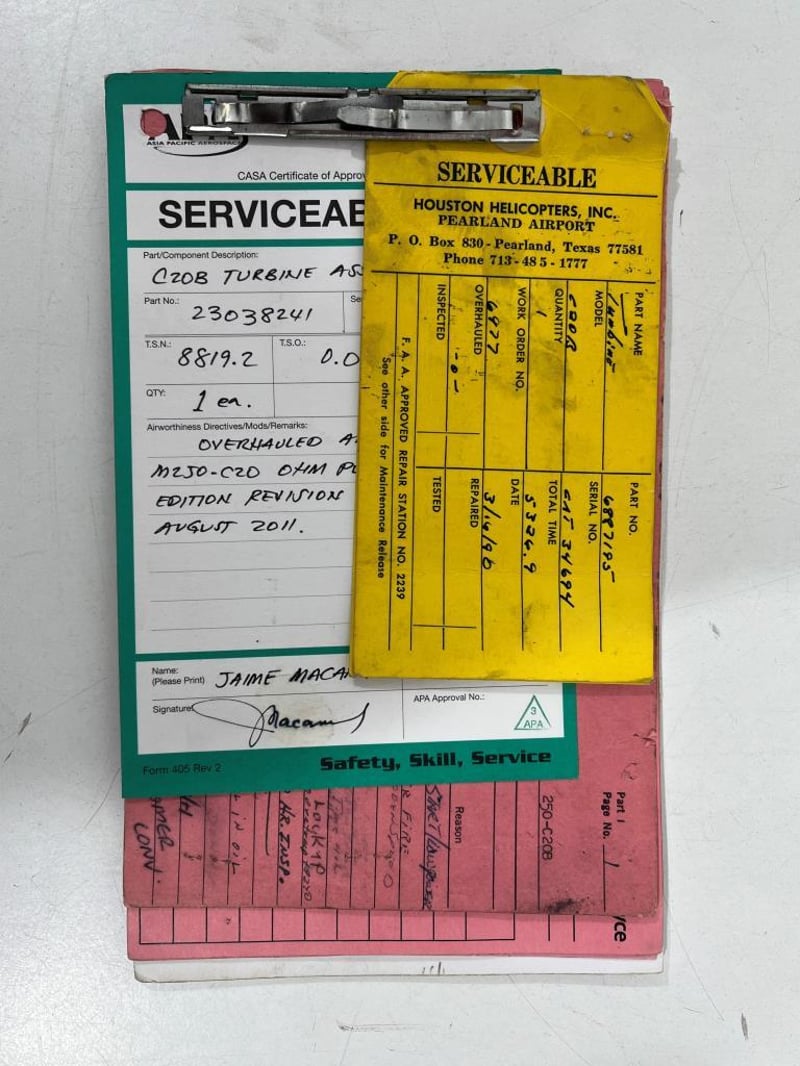 ASIA PACIFIC AEROSPACE
CASA Certificate of Approv
SERVICEAB
Part/Component Description:
C20B TURBINE ASS
Part No.:
Se
23038241
T.S.N.:
8819.2
T.S.O.:
0.0
QTY:
1 ea.
Airworthiness Directives/Mods/Remarks:
OVERHAULED A
M250-C20 OHM PU
EDITION REVISION
AUGUST 2011.
Name:
(Please Print)
JAIME MACA
Signature
APA Approval No.:
3
APA
Form 405 Rev 2
Safety, Skill, Service
SERVICEABLE
HOUSTON HELICOPTERS, INC.
PEARLAND AIRPORT
P. O. Box 830 - Pearland, Texas 77581
Phone 713-485-1777
PART NAME
Turbine
PART NO.
6887195
MODEL
C20B
SERIAL NO.
CAT 34694
QUANTITY
1
TOTAL TIME
5326.9
WORK ORDER NO.
6977
DATE
3/16/90
OVERHAULED
-0-
REPAIRED
INSPECTED
TESTED
F. A. A. APPROVED REPAIR STATION NO. 2239
See other side for Maintenance Release
Part 1
Page No.
1
250-C20B
Reason
R FIRE
HR. INSP.
IN OIL
CONV.